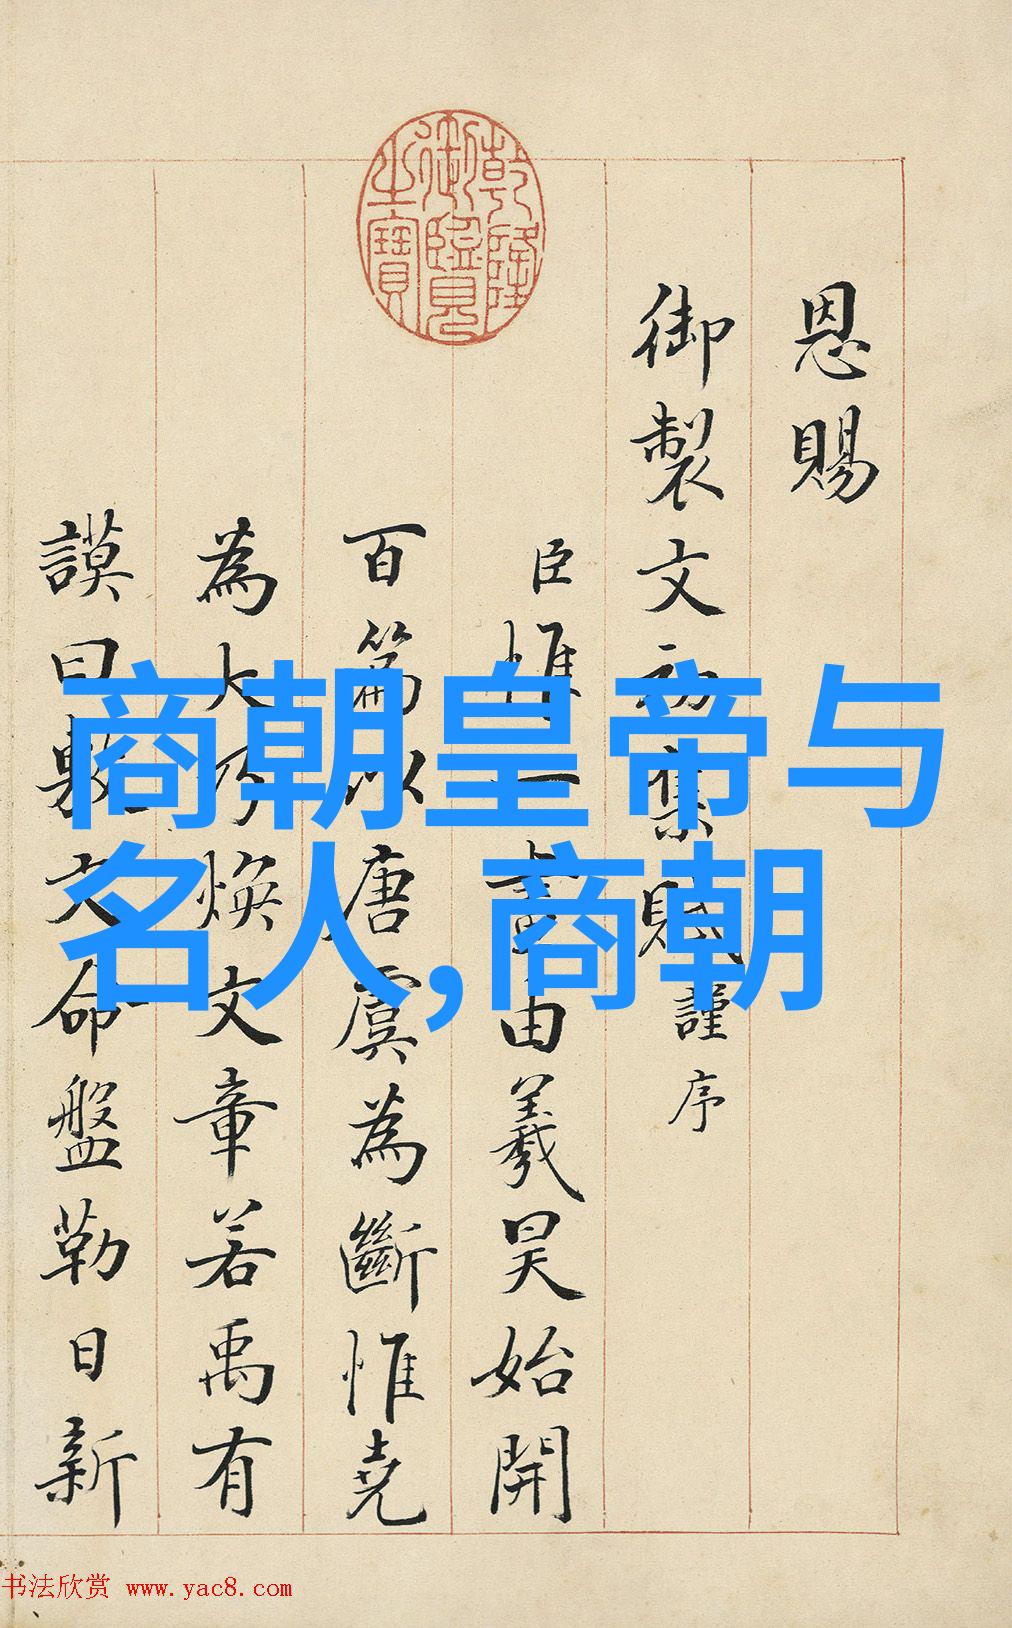 乾隆
御覽
之寶
恩賜
御製文初集賦謹序
臣惟一畫由羲昊始開
百篇以唐虞為斷惟堯
為大乃煥文章若禹有
謨曰敷文命盤勒日新
商朝皇帝与
名人,商朝
书法欣赏 www.yac8.com